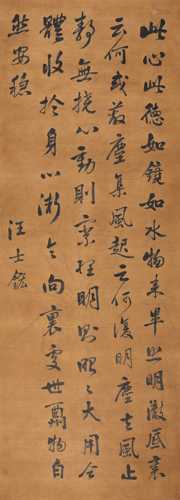 此心此德如鏡如水物來畢照明澈底裏
云何或蔽塵集風起云何復明塵去風止
靜無撓心動則明則大用全
體收於身心漸令向裏處世物自
然安穩
汪士鋐